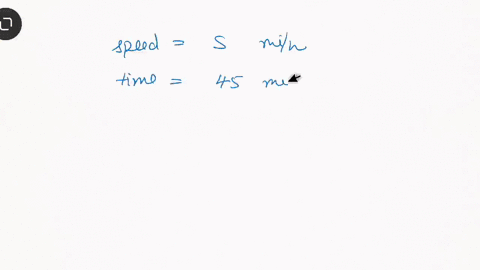 speed = 5 mi/h
time = 45 me